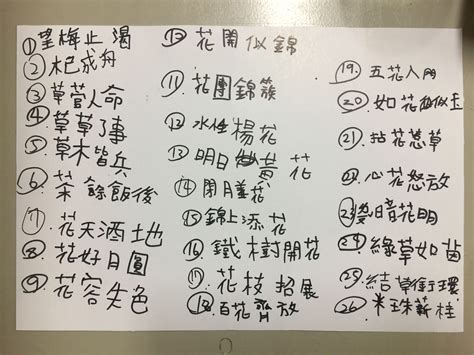 ①望梅止渴
②木已成舟
③草菅人命
④草草了事
⑤草木皆兵
⑥茶餘飯後
⑦花天酒地
⑧花好月圓
⑨花容失色
⑩花開似錦
⑪花團錦簇
⑫水性楊花
⑬明日黃花
⑭閉月羞花
⑮錦上添花
⑯鐵樹開花
⑰花枝招展
⑱百花齊放
⑲五花八門
⑳如花似玉
㉑拈花惹草
㉒心花怒放
㉓暗花明
㉔綠草如茵
㉕結草銜環
㉖米珠薪桂